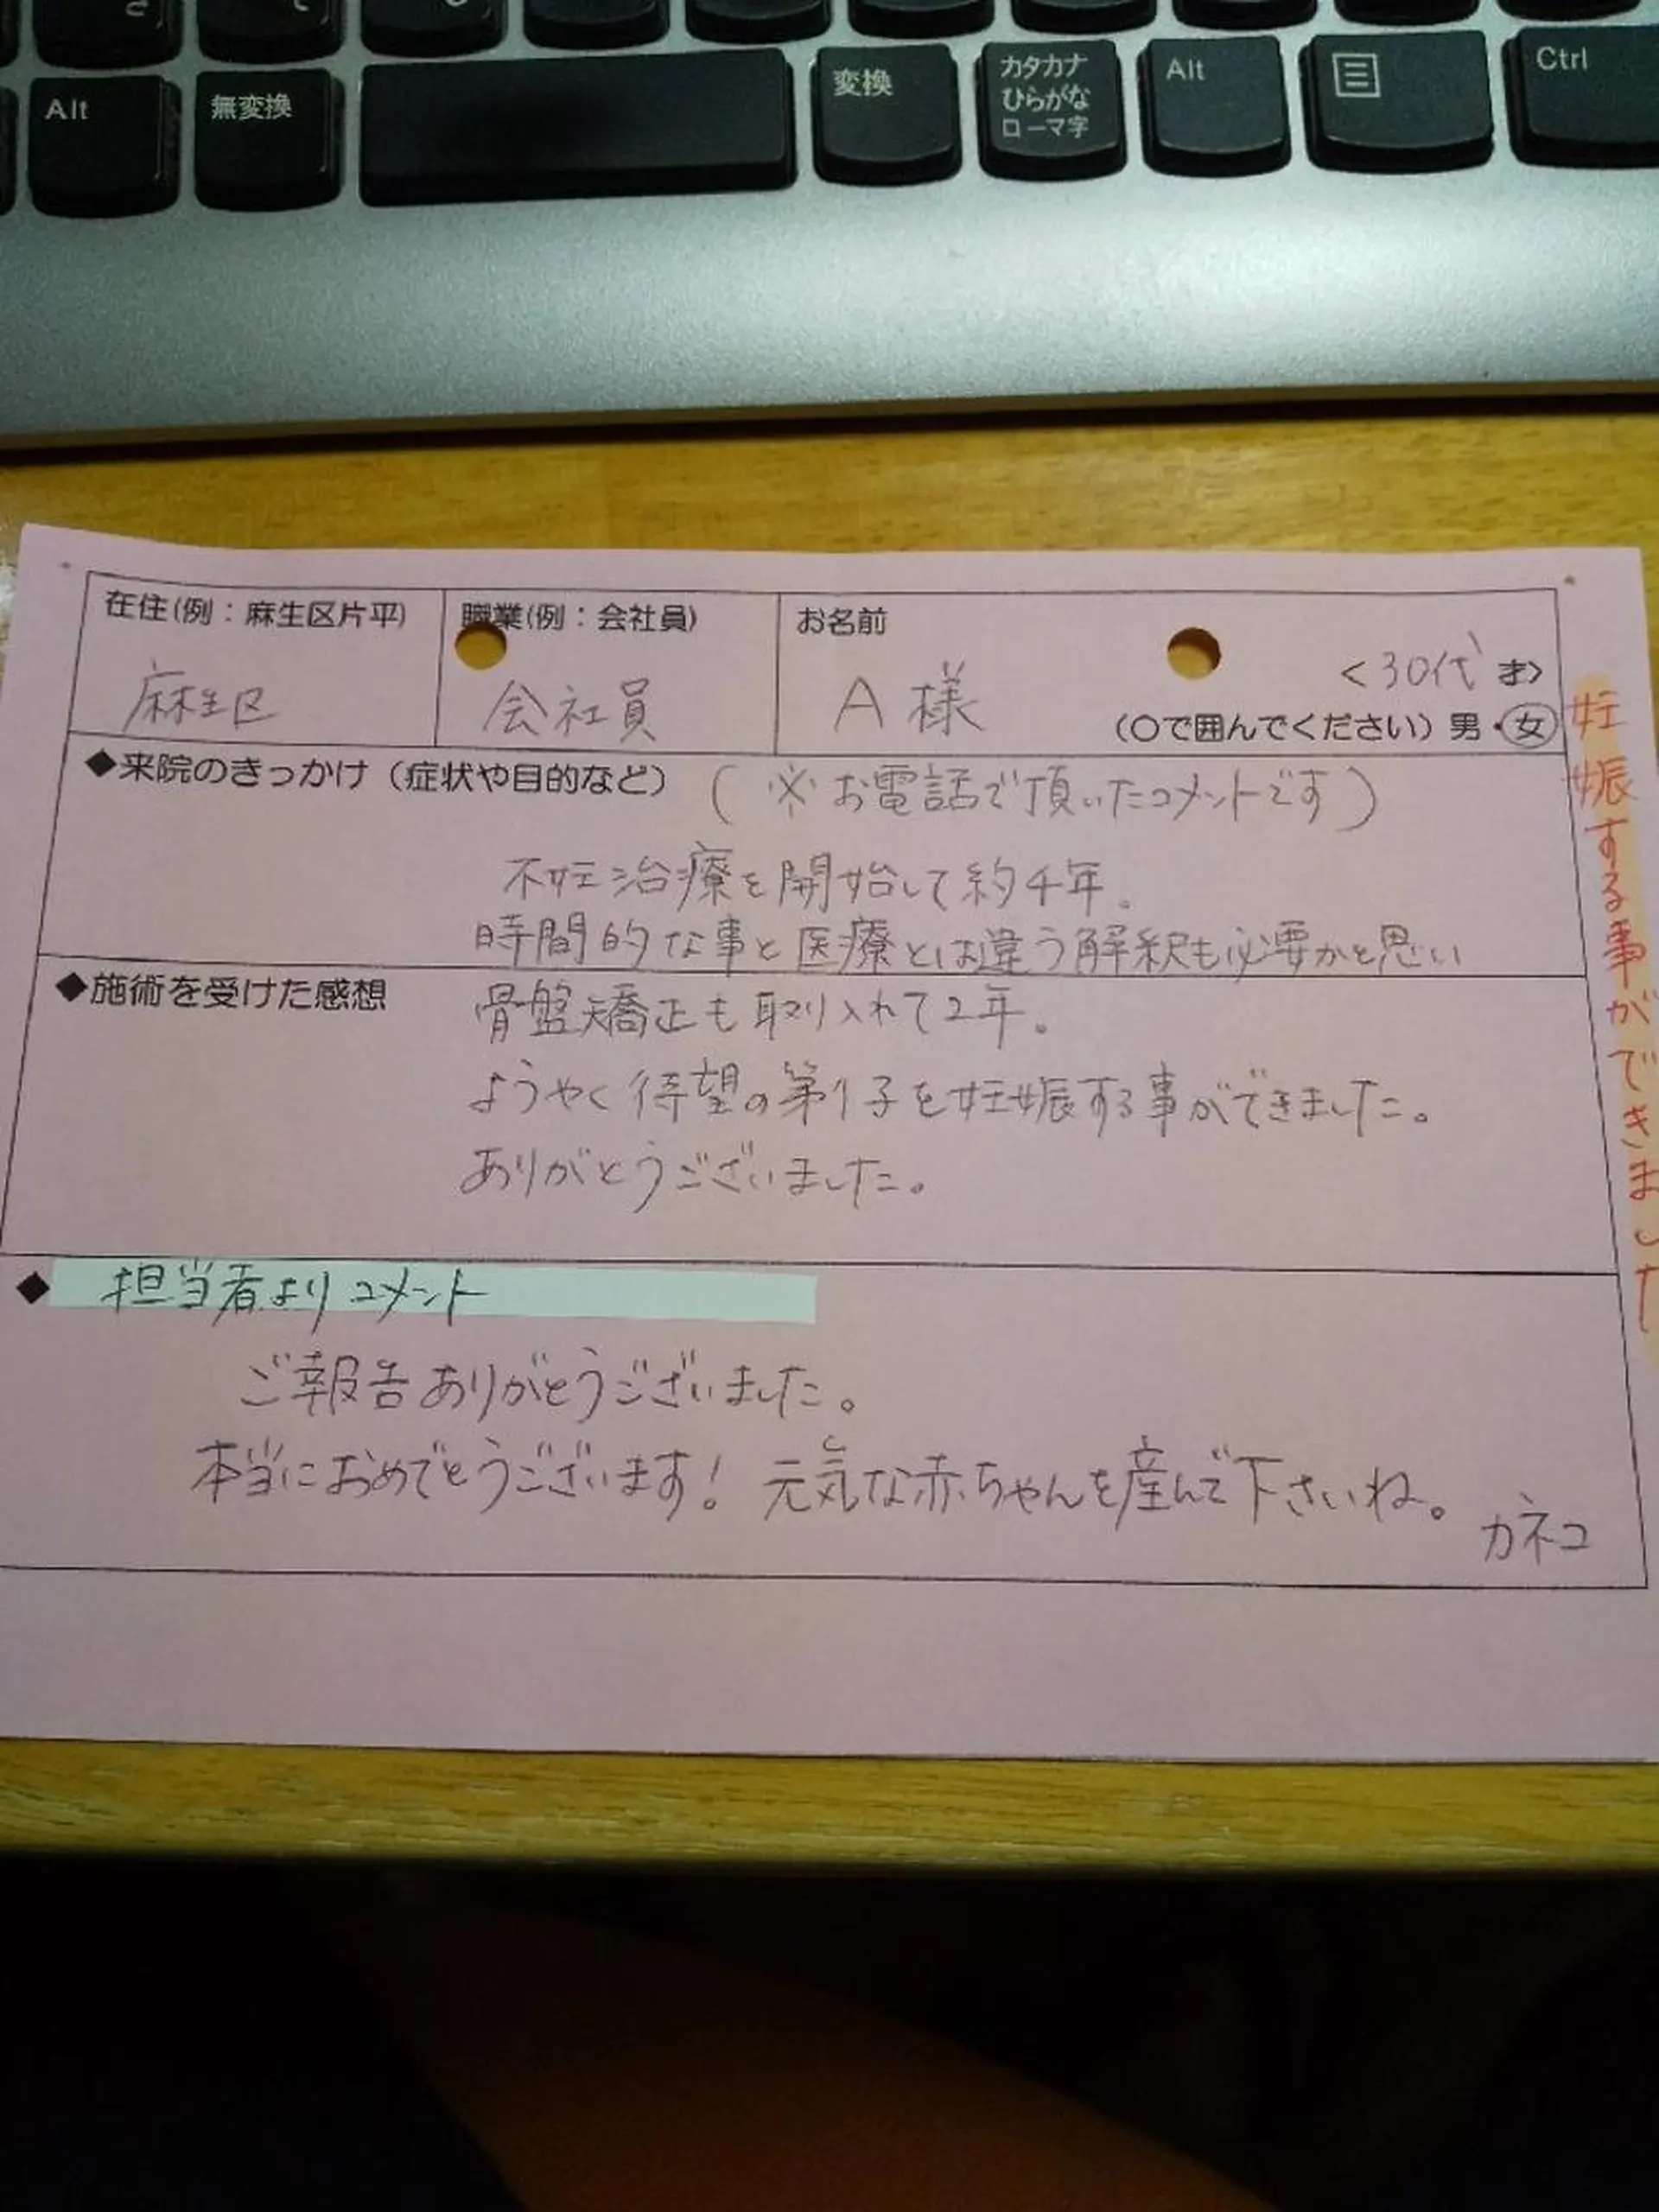 Alt
無変換
変換
カタカナ
ひらがな
ローマ字
Alt
Ctrl
在住(例：麻生区片平)
麻生区
職業(例：会社員)
会社員
お名前
A 様
<30代 才>
(○で囲んでください) 男・女
◆来院のきっかけ (症状や目的など) (※お電話で頂いたコメントです)
不妊治療を開始して約4年。
時間的な事と医療とは違う解釈も必要かと思い
◆施術を受けた感想
骨盤矯正も取り入れて2年。
ようやく待望の第1子を妊娠する事ができました。
ありがとうございました。
◆ 担当者よりコメント
ご報告ありがとうございました。
本当におめでとうございます! 元気な赤ちゃんを産んで下さいね。
カネコ
妊娠する事ができました